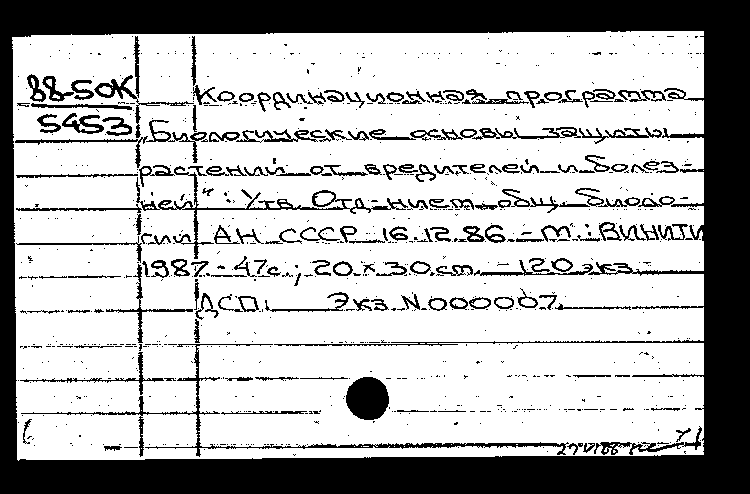 88-50К
5453
Координационная программа
„Биологические основы защиты
растений от вредителей и болез-
ней“: Утв. Отд-нием общ. биоло-
гии АН СССР 16.12.86. - М.: ВИНИТИ
1987. - 47с.; 20 х 30 см. - 120 экз. -
ДСП. Экз. N000007.
6